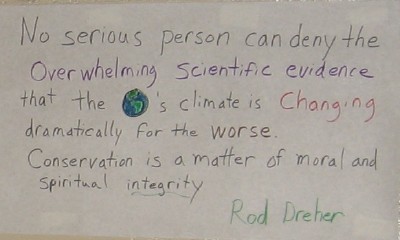 No serious person can deny the
Overwhelming Scientific evidence
that the 's climate is Changing
dramatically for the worse.
Conservation is a matter of moral and
spiritual integrity
Rod Dreher